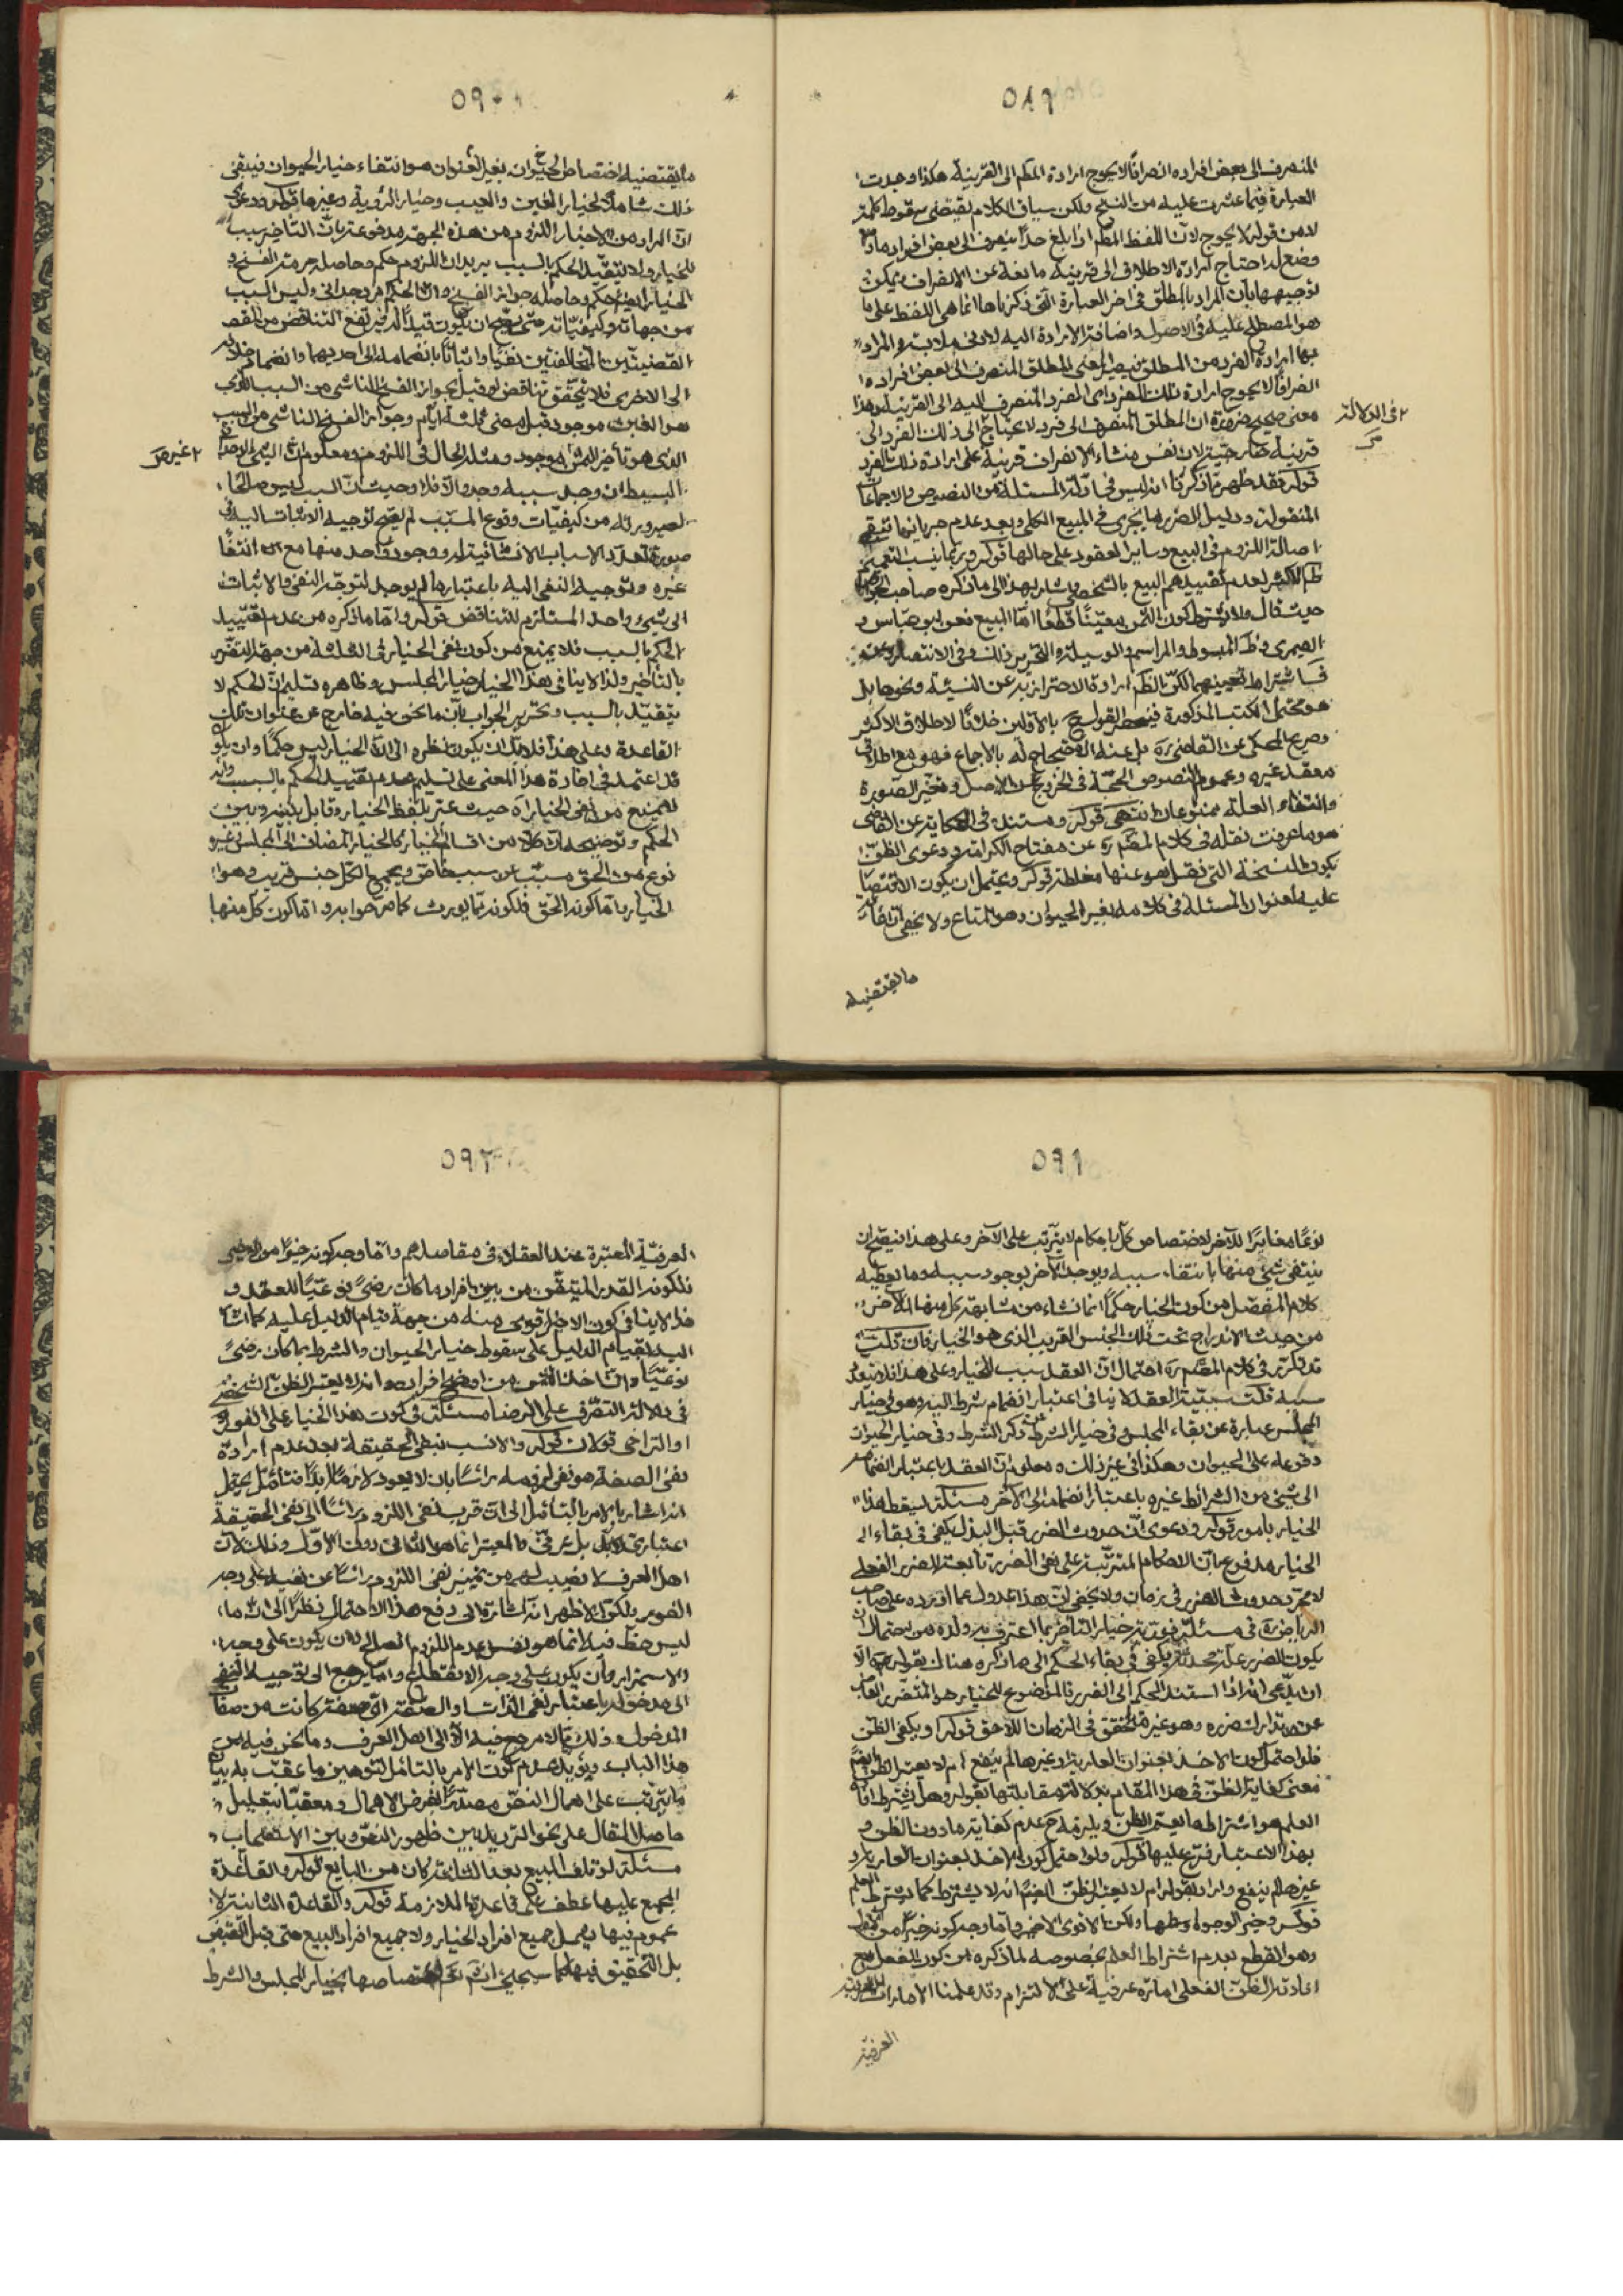 ٥٨٩
المنصرف الى بعض افراده انصرافًا لا يحوج ارادة المظم الى القرينة هكذا وجدت
العبارة فيما عثرت عليه من النسخ ولكن سياق الكلام يقتضى سقوط كلمة
لا من قوله لا يحوج لانّ اللفظ المظم اذا بلغ حدًا ينصرف الى بعض افراد ما
وضع له احتاج ارادة الاطلاق الى قرينة مانعة عن الانصراف ويمكن
توجيهها بان المراد بالمطلق فى اخر العبارة التى ذكرناها انما هى اللفظ على ما
هو المصطلح عليه فى الاصول واضافة الارادة اليه لادنى ملابسة والمراد
بها ارادة الفرد من المطلق فيصير المعنى المطلق المنصرف الى بعض افراده
انصرافًا لا يحوج ارادة ذلك الفرد اى الفرد المنصرف اليه الى القرينة وهذا
معنى صحيح ضرورة ان المطلق المنصرف الى فرد لا يحتاج الى ذلك الفرد الى
٢ فى الدلالة
قرينة خارجية لان نفس منشاء الانصراف قرينة على ارادة ذلك الفرد
قوله فقد ظهر مما ذكرنا انه ليس فى ادلة المسئلة من النصوص والاجماعات
المنقولة ودليل الضرر ما يجرى فى المبيع الكلى وبعد عدم جريانها تبقى
اصالة اللزوم فى البيع وساير العقود على حالها قوله وربما ينسب التعميم
ظم الاكثر لعدم تقييدهم البيع بالشخصى يشار بهذا الى ما ذكره صاحب الجواهر
حيث قال ولا يشترط كون الثمن معيّنًا قطعًا امّا المبيع فعن ابو عباس و
الصيمرى وظ المبسوط والمراسم والوسيلة والتحرير ذلك وفى الانتصار
فى اشتراط تعيينهما لكن الظم ارادة الاحتراز به عن النسيئة ونحوها بل
هو محتمل الكتب المذكورة فينحصر القول ح بالاولين خلافًا لاطلاق الاكثر
وصريح المحكى عن القاضى ره بل عنه الاحتجاج له بالاجماع فهو مع اطلاق
معقد غيره وعموم النصوص الحجة فى الخروج عن الاصل وتغير الصورة
وانتفاء العلة ممنوعان انتهى قوله ومستنده فى الحكاية عن القاضى
هو ما عرفت نقله فى كلام المصم ره عن مفتاح الكرامة ودعوى الظن
بكون النسخة التى نقل هو عنها مغلطة قوله ويحتمل ان يكون الاقتصار
عليه لعنوان المسئلة فى كلامه بغير الحيوان وهو المتاع ولا يخفى ان
ما يقتضيه
٥٩٠
ما يقتضيه اختصاص الحيوان بغير العنوان هو انتفاء خيار الحيوان فيبقى
ذلك شاملًا لخيار الغبن والعيب وخيار الرؤية وغيرها قوله ودعوى
ان المراد من الاخبار اللزوم من هذه الجهة مدفوعة بانّ التاخير سبب
للخيار ولا يتقيّد الحكم بالسبب يريد ان اللزوم حكم وحاصله حرمة الفسخ و
الخيار ايضًا حكم وحاصله جواز الفسخ وانّ الحكم امر وجدانى وليس السبب
من جهاته وكيفيّاته حتى يصح ان يكون قيدًا له فيرتفع التناقض من
القضيتين المتخالفتين نفيًا واثباتًا بانضمامه الى احديهما وانضمام خلافه
الى الاخرى فلا يتحقق تناقض لو قيل بجواز الفسخ الناشى من السبب الذى
هو الغبن موجود قبل مضى ثلثة ايام وجواز الفسخ الناشى من السبب
الذى هو تأخير الثمن غير موجود ومثله الحال فى اللزوم ومعلوم ان الشئ الواحد
٢ غير
البسيط ان وجد سببه وجد والّا فلا وحيث انّ السبب ليس صالحًا
لصيرورته من كيفيّات وقوع المسبّب لم يصح توجيه الاثبات اليه فى
صورة تعدّد الاسباب الانشائية له ووجود واحد منها مع انتفاء
غيره وتوجيه النفى اليه باعتبارها لم يوجد لتوجّه النفى والاثبات
الى شئ واحد المستلزم للتناقض قوله وامّا ما ذكره من عدم تقييد
الحكم بالسبب فلا يمنع من كون نفى الخيار فى الثلثة من جهة التضرّر
بالتأخير ولذا لا ينافى هذا الخيار خيار المجلس وظاهره تسليم انّ الحكم لا
يتقيّد بالسبب وتحرير الجواب بان ما نحن فيه خارج عن عنوان تلك
القاعدة وعلى هذا فلا بدّ ان يكون نظره الى انّ الخيار ليس حكمًا وان يكون
قد اعتمد فى افادة هذا المعنى على تسليم عدم تقييد الحكم بالسبب وانه
لا يمنع من نفى الخيار اه حيث عبّر بلفظ الخيار وقابل بينه وبين
الحكم وتوضيحه ان كلًا من اقسام الخيار كالخيار المضاف الى المجلس وغيره
نوع من الحق مسبّب عن سبب خاص ويجمع الكل جنس قريب وهو
الخيار امّا كونه الحقّ فلكونه ممّا يورث كما صرّحوا به وامّا كون كل منها
٥٩١
نوعًا مغايرًا للآخر لاختصاص كلّ باحكام لا يترتب على الآخر وعلى هذا فيصح ان
ينتفى شئ منها بانتفاء سببه ويوجد الآخر بوجود سببه وما يعطيه
كلام المفصّل من كون الخيار حكمًا انما نشاء من مشابهة كل منها الآخر
من حيث الاندراج تحت ذلك الجنس القريب الذى هو الخيار فان قلت
قد ذكرت فى كلام المصم ره احتمال انّ العقد سبب للخيار وعلى هذا فلا يتعدّد
سببه قلت سببيّة العقد لا ينافى اعتبار انضمام شرط اليه وهو فى خيار
المجلس عبارة عن بقاء المجلس وفى خيار الشرط عن ذكر الشرط وفى خيار الحيوان
وقوعه على الحيوان وهكذا فى غير ذلك ومعلوم ان العقد باعتبار انضمامه
الى شئ من الشرائط غيره باعتبار انضمامه الى الآخر مسئلة يسقط هذا
الخيار بامور قوله ودعوى انّ حدوث الضرر قبل البذل يكفى فى بقاء
الخيار مدفوعة بانّ الاحكام المترتّبة على نفى الضرر تابعة للضرر الفعلى
لا مجرّد حدوث الضرر فى زمان ولا يخفى انّ هذا عدول عما اورده على صاحب
الرياض ره فى مسئلة فورية خيار التاخير بما اعترف به ولده من احتمال ان
يكون الضرر علة محدثة يكفى فى بقاء الحكم الى ما ذكره هناك بقوله الّا
ان يدّعى انه اذا استند الحكم الى الضرر فالموضوع للخيار هو المتضرر العاجز
عن تدارك ضرره وهو غير متحقق فى الزمان اللاحق قوله ويكفى الظن
فلو احتمل كون الاخذ بعنوان العارية او غيرها لم ينفع ام لا يعتبر الظن ايضًا
معنى كفاية الظنّ فى هذا المقام بدلالة مقابلتها بقوله وهل يشترط افادة
العلم هو اشتراط ما يعتبر الظن ويلزمه ح عدم كفاية ما دون الظن و
بهذا الاعتبار فرّع عليها قوله ولو احتمل كون الاخذ بعنوان العارية او
غيرها لم ينفع واراد بقوله ام لا يعتبر الظنّ ايضًا انه لا يشترط كما لا يشترط العلم
قوله وخير الوجوه اوسطها ولكن الاقوى الاخير وامّا وجه كونه خيرًا من
وهو القطع بعدم اشتراط العلم بخصوصه لما ذكره من كون الفعل مع
افادته الظنّ الفعلى امارة عرفية على الالتزام وقد علمنا الامارات
العرفية
٥٩٢
العرفيّة المعتبرة عند العقلاء فى مقاصدهم وامّا وجه كونه خيرًا من
فلكونه القدر المتيقّن من بين افراد ما كان رضىً نوعيّا للعقد و
هذا لا ينافى كون الاخير قوى منه من جهة قيام الدليل عليه كما اشار
اليه بقيام الدليل على سقوط خيار الحيوان والشرط بما كان رضىً
نوعيّا وانّ اخذ الثمن من اوضح افراده وانه لا يعتبر الظنّ الشخصى
فى دلالة التصرّف على الرضا مسئلة فى كون هذا الخيار على الفور
او التراخى قولان قوله والانسب بنفى الحقيقة بعد عدم ارادة
نفى الصفة هو نفى لزومه رأسًا بان لا يعود لازمًا ابدًا فتأمّل يحتمل
انه اشار بالامر بالتأمّل الى انّ قرب نفى اللزوم رأسًا الى نفى الحقيقة
اعتبارى بل عرفى فالمعتبر انما هو الثانى دون الاوّل وذلك لانّ
اهل العرف لا نصيب لهم من تميّز نفى اللزوم رأسًا عن نفيه على وجه
الفور ولكن الاظهر انه اشارة الى دفع هذا الاحتمال نظرًا الى ان ما
ليس حظ فيه انما هو نفس عدم اللزوم الصالح لان يكون على وجه
الاستمرار وان يكون على وجه الانقطاع وامّا يرجع الى توجيه النفى
الى مدخوله باعتبار نفى الذات والصفة اىّ صفة كانت من صفات
المدخول وذلك ممّا لا مرجع فيه الّا الى اهل العرف وما نحن فيه من
هذا الباب ويؤيد عدم كون الامر بالتأمّل للتوهين ما عقّب به بيان
ما يترتب على اهمال النصّ مصدّرًا لفرض الاهمال ومعقّبًا بتعليل
حاصل المقال على نحو الترديد بين ظهور النصّ وبين الاستصحاب
مسئلة لو تلف المبيع بعد الثلثة كان من البايع قوله والقاعدة
المجمع عليها عطف على قاعدة الملازمة قوله والقاعدة الثانية لا
عموم فيها يشمل جميع افراد الخيار ولا جميع افراد البيع حتى قبل القبض
بل التحقيق فيها كما سيجئ انشم تعم اختصاصها بخيار المجلس والشرط